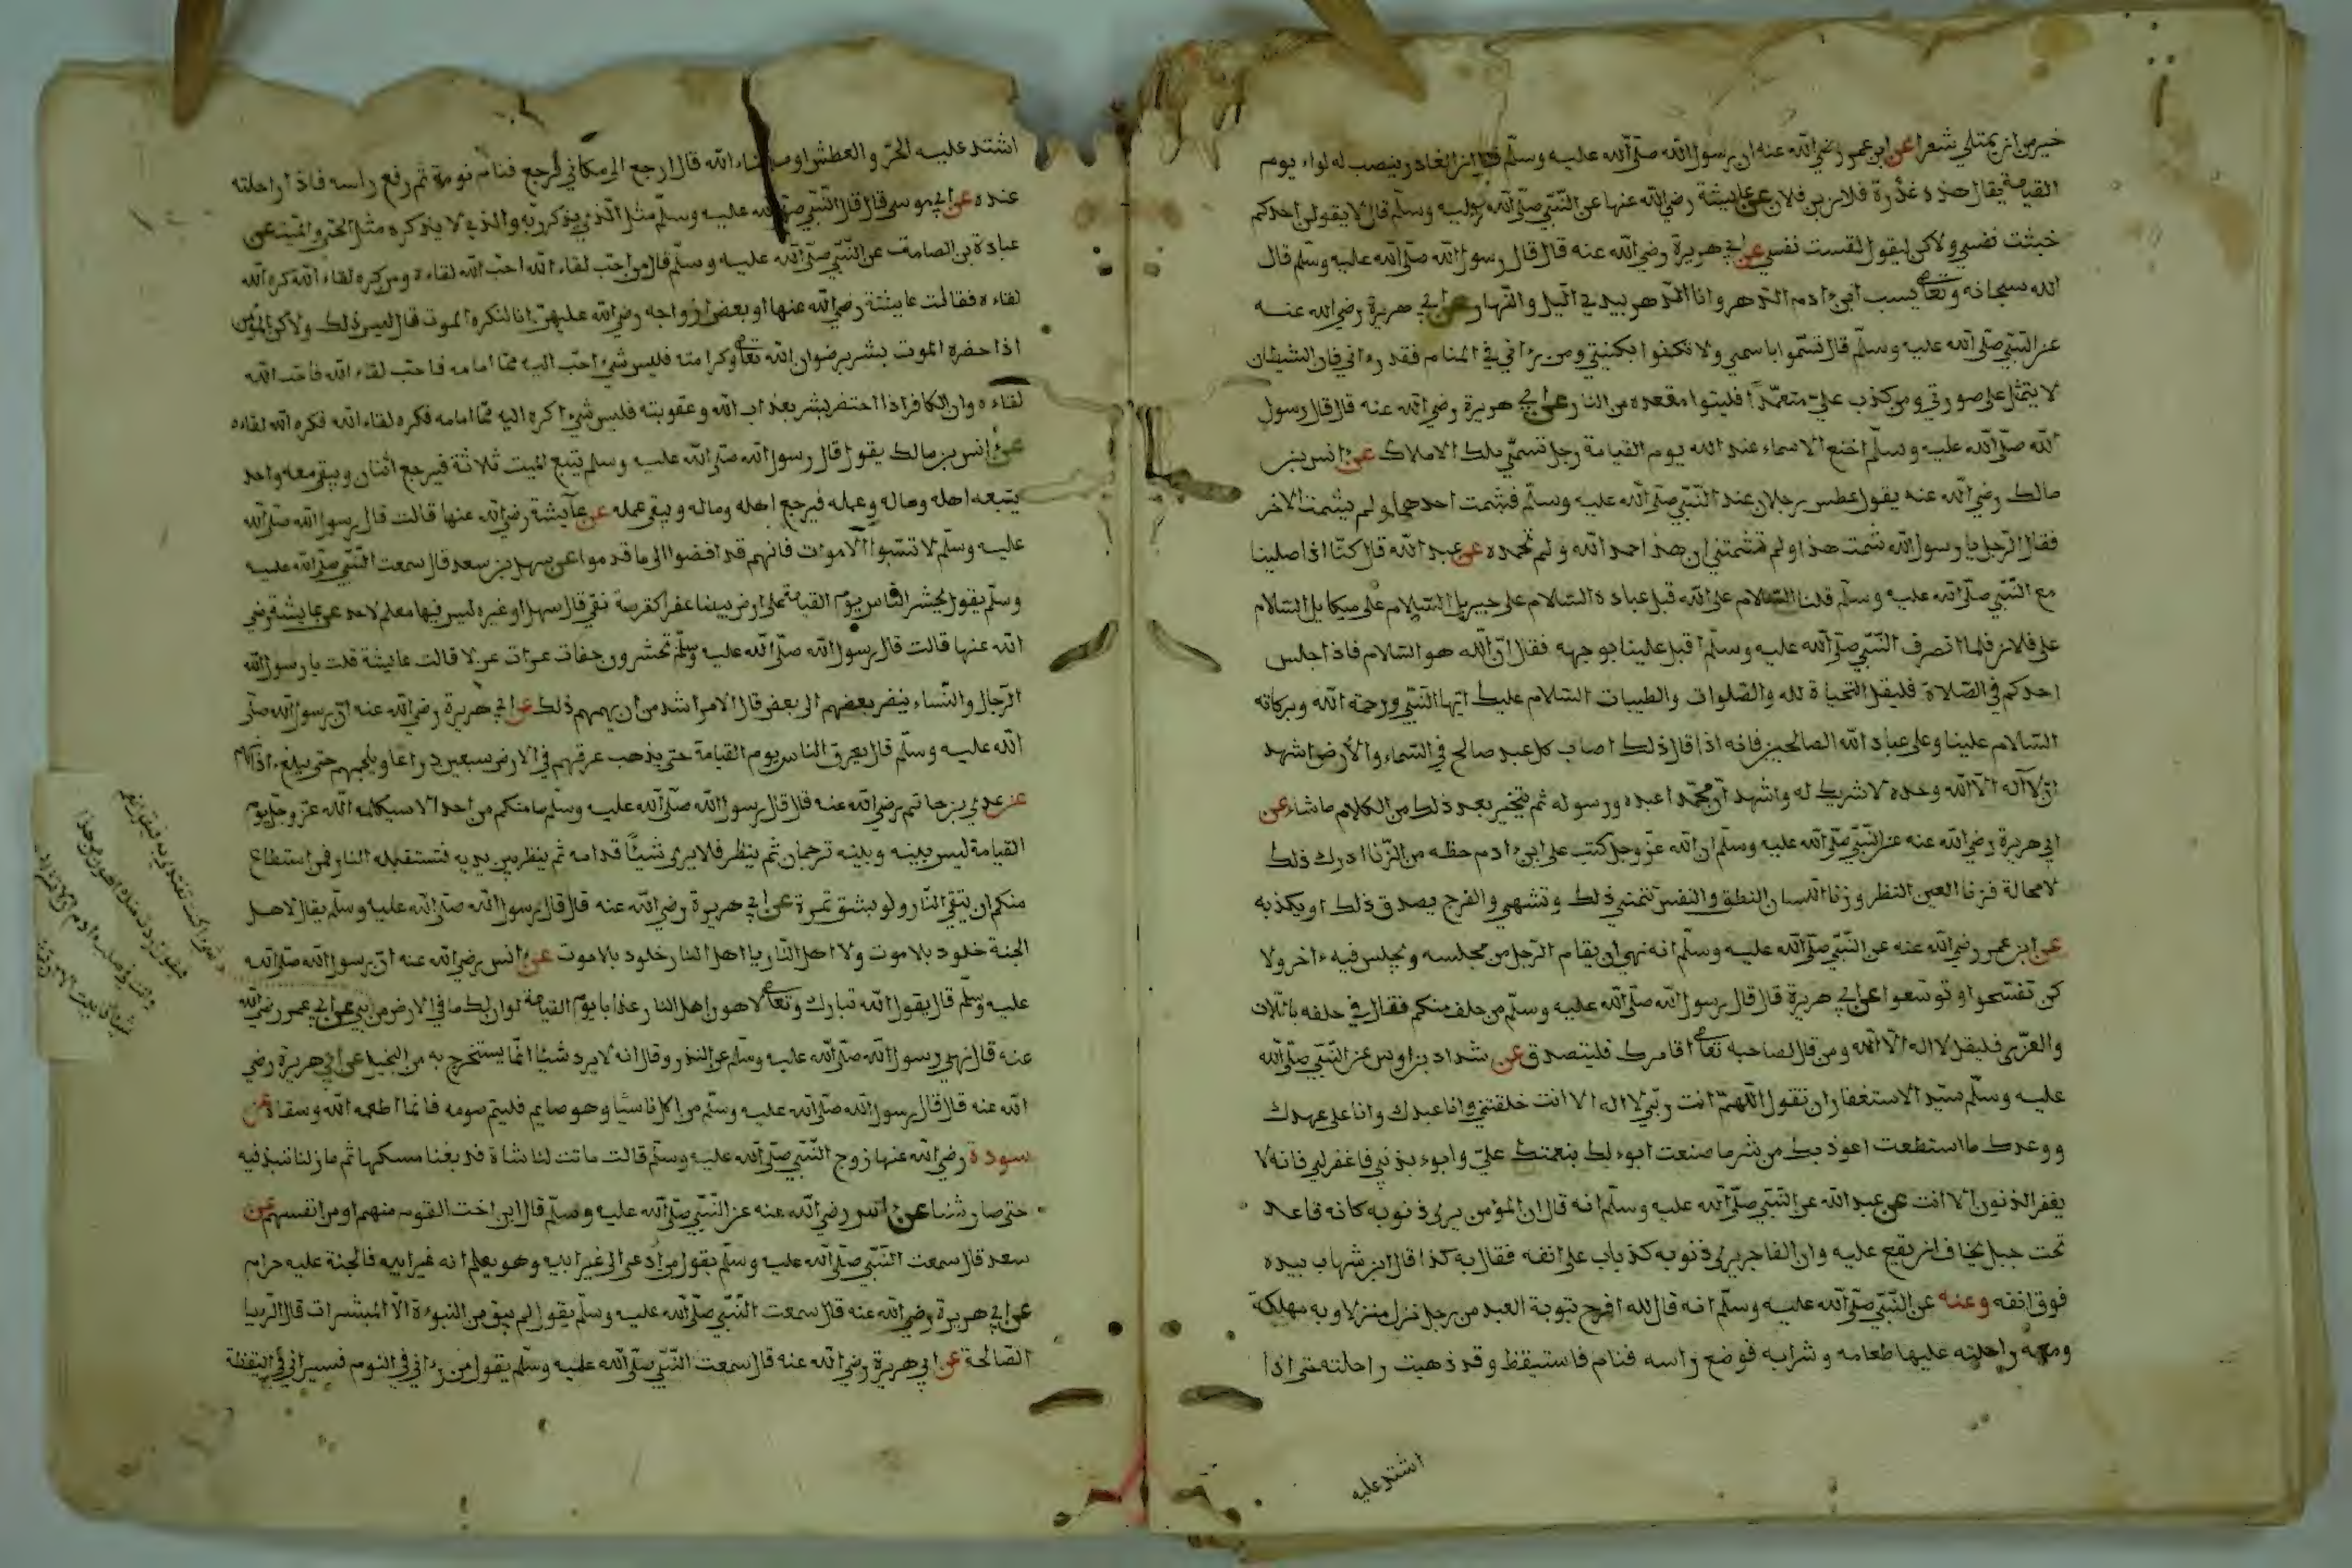 خير من ان يمتلي شعرا عن ابن عمر رضي الله عنه ان رسول الله صلى الله عليه وسلم قال ان الغادر ينصب له لواء يوم
القيامة يقال هذه غدرة فلان بن فلان عن عايشة رضي الله عنها عن النبي صلى الله عليه وسلم قال لا يقولن احدكم
خبثت نفسي ولاكن ليقول لقست نفسي عن ابي هريرة رضي الله عنه قال قال رسول الله صلى الله عليه وسلم قال
الله سبحانه وتعالى يسب ابن ءادم الدهر وانا الدهر بيدي اليل والنهار عن ابي هريرة رضي الله عنه
عن النبي صلى الله عليه وسلم قال تسموا باسمي ولا تكنوا بكنيتي ومن رءاني في المنام فقد رءاني فان الشيطان
لا يتمثل على صورتي ومن كذب علي متعمدا فليتبوا مقعده من النار عن ابي هريرة رضي الله عنه قال قال رسول
الله صلى الله عليه وسلم اخنع الاسماء عند الله يوم القيامة رجل تسمى بملك الاملاك عن انس بن
مالك رضي الله عنه يقول عطس رجلان عند النبي صلى الله عليه وسلم فشمت احدهما ولم يشمت الاخر
فقال الرجل يا رسول الله شمت هذا ولم تشمتني ان هذا احمد الله ولم تحمده عن عبد الله قال كنا اذا صلينا
مع النبي صلى الله عليه وسلم قلنا السلام على الله قبل عباده السلام على جبريل السلام على ميكايل السلام
على فلان فلما انصرف النبي صلى الله عليه وسلم اقبل علينا بوجهه فقال ان الله هو السلام فاذا جلس
احدكم في الصلاة فليقل التحياة لله والصلوات والطيبات السلام عليك ايها النبي ورحمة الله وبركاته
السلام علينا وعلى عباد الله الصالحين فانه اذا قال ذلك اصاب كل عبد صالح في السماء والارض اشهد
ان لا اله الا الله وحده لا شريك له واشهد ان محمدا عبده ورسوله ثم يتخير بعد ذلك من الكلام ما شاء عن
ابي هريرة رضي الله عنه عن النبي صلى الله عليه وسلم ان الله عز وجل كتب على ابن ءادم حظه من الزنا ادرك ذلك
لا محالة فزنا العين النظر وزنا اللسان النطق والنفس تتمنى ذلك وتشهي والفرج يصدق ذلك او يكذبه
عن ابن عمر رضي الله عنه عن النبي صلى الله عليه وسلم انه نهى ان يقام الرجل من مجلسه ويجلس فيه ءاخر ولا
كن تفسحوا وتوسعوا عن ابي هريرة قال قال رسول الله صلى الله عليه وسلم من حلف منكم فقال في حلفه باللات
والعزى فليقل لا اله الا الله ومن قال لصاحبه تعالى اقامرك فليتصدق عن شداد بن اوس عن النبي صلى الله
عليه وسلم سيد الاستغفار ان تقول اللهم انت ربي لا اله الا انت خلقتني وانا عبدك وانا على عهدك
ووعدك ما استطعت اعوذ بك من شر ما صنعت ابوء لك بنعمتك علي وابوء بذنبي فاغفر لي فانه لا
يغفر الذنوب الا انت عن عبد الله عن النبي صلى الله عليه وسلم انه قال ان المؤمن يرى ذنوبه كانه قاعد
تحت جبل يخاف ان يقع عليه وان الفاجر يرى ذنوبه كذباب على انفه فقال به كذا قال ابن شهاب بيده
فوق انفه وعنه عن النبي صلى الله عليه وسلم انه قال لله افرح بتوبة العبد من رجل نزل منزلا وبه مهلكة
ومعه راحلته عليها طعامه وشرابه فوضع راسه فنام فاستيقظ وقد ذهبت راحلته حتى اذا
اشتد عليه
اشتد عليه الحر والعطش او ما شاء الله قال ارجع الى مكاني فرجع فنام نومة ثم رفع راسه فاذا راحلته
عنده عن ابي موسى قال قال النبي صلى الله عليه وسلم مثل الذي يذكر ربه والذي لا يذكره مثل الحي والميت عن
عبادة بن الصامت عن النبي صلى الله عليه وسلم قال من احب لقاء الله احب الله لقاءه ومن كره لقاء الله كره الله
لقاءه فقالت عايشة رضي الله عنها او بعض ازواجه رضي الله عليهن انا لنكره الموت قال ليس ذلك ولاكن المؤمن
اذا حضره الموت بشر برضوان الله تعالى وكرامته فليس شيء احب اليه مما امامه فاحب لقاء الله فاحب الله
لقاءه وان الكافر اذا احتضر بشر بعذاب الله وعقوبته فليس شيء اكره اليه مما امامه فكره لقاء الله فكره الله لقاءه
عن انس بن مالك يقول قال رسول الله صلى الله عليه وسلم يتبع الميت ثلاثة فيرجع اثنان ويبقى معه واحد
يتبعه اهله وماله وعمله فيرجع اهله وماله ويبقى عمله عن عايشة رضي الله عنها قالت قال رسول الله صلى الله
عليه وسلم لا تسبوا الاموات فانهم قد افضوا الى ما قدموا عن سهل بن سعد قال سمعت النبي صلى الله عليه
وسلم يقول يحشر الناس يوم القيامة على ارض بيضا عفرا كقرصة نقي قال سهل او غيره ليس فيها معلم لاحد عن عايشة رضي
الله عنها قالت قال رسول الله صلى الله عليه وسلم تحشرون حفاة عراة غرلا قالت عايشة قلت يا رسول الله
الرجال والنساء ينظر بعضهم الى بعض قال الامر اشد من ان يهمهم ذلك عن ابي هريرة رضي الله عنه ان رسول الله صلى
الله عليه وسلم قال يعرق الناس يوم القيامة حتى يذهب عرقهم في الارض سبعين ذراعا ويلجمهم حتى يبلغ ءاذانهم
عن عدي بن حاتم رضي الله عنه قال قال رسول الله صلى الله عليه وسلم ما منكم من احد الا سيكلمه الله عز وجل يوم
القيامة ليس بينه وبينه ترجمان ثم ينظر فلا يرى شيئا قدامه ثم ينظر بين يديه فتستقبله النار فمن استطاع
منكم ان يتقي النار ولو بشق تمرة عن ابي هريرة رضي الله عنه قال قال رسول الله صلى الله عليه وسلم يقال لاهل
الجنة خلود بلا موت ولاهل النار يا اهل النار خلود بلا موت عن انس رضي الله عنه ان رسول الله صلى الله
عليه وسلم قال يقول الله تبارك وتعالى لاهون اهل النار عذابا يوم القيامة لو ان لك ما في الارض من شيء عن ابي عمر رضي الله
عنه قال نهى رسول الله صلى الله عليه وسلم عن النذر وقال انه لا يرد شيئا انما يستخرج به من البخيل عن ابي هريرة رضي
الله عنه قال قال رسول الله صلى الله عليه وسلم من اكل ناسيا وهو صايم فليتم صومه فانما اطعمه الله وسقاه عن
سودة رضي الله عنها زوج النبي صلى الله عليه وسلم قالت ماتت لنا شاة فدبغنا مسكها ثم ما زلنا ننبذ فيه
حتى صار شنا عن انس رضي الله عنه عن النبي صلى الله عليه وسلم قال ابن اخت القوم منهم او من انفسهم عن
سعد قال سمعت النبي صلى الله عليه وسلم يقول من ادعى الى غير ابيه وهو يعلم انه غير ابيه فالجنة عليه حرام
عن ابي هريرة رضي الله عنه قال سمعت النبي صلى الله عليه وسلم يقول لم يبق من النبوءة الا المبشرات قال الرييا
الصالحة عن ابي هريرة رضي الله عنه قال سمعت النبي صلى الله عليه وسلم يقول من رءاني في النوم فسيراني في اليقظة
شيء اكنت تفتدي به فيقول نعم
فيقول اردت منك اهون من هذا
وانت في صلب ءادم ان لا تشرك